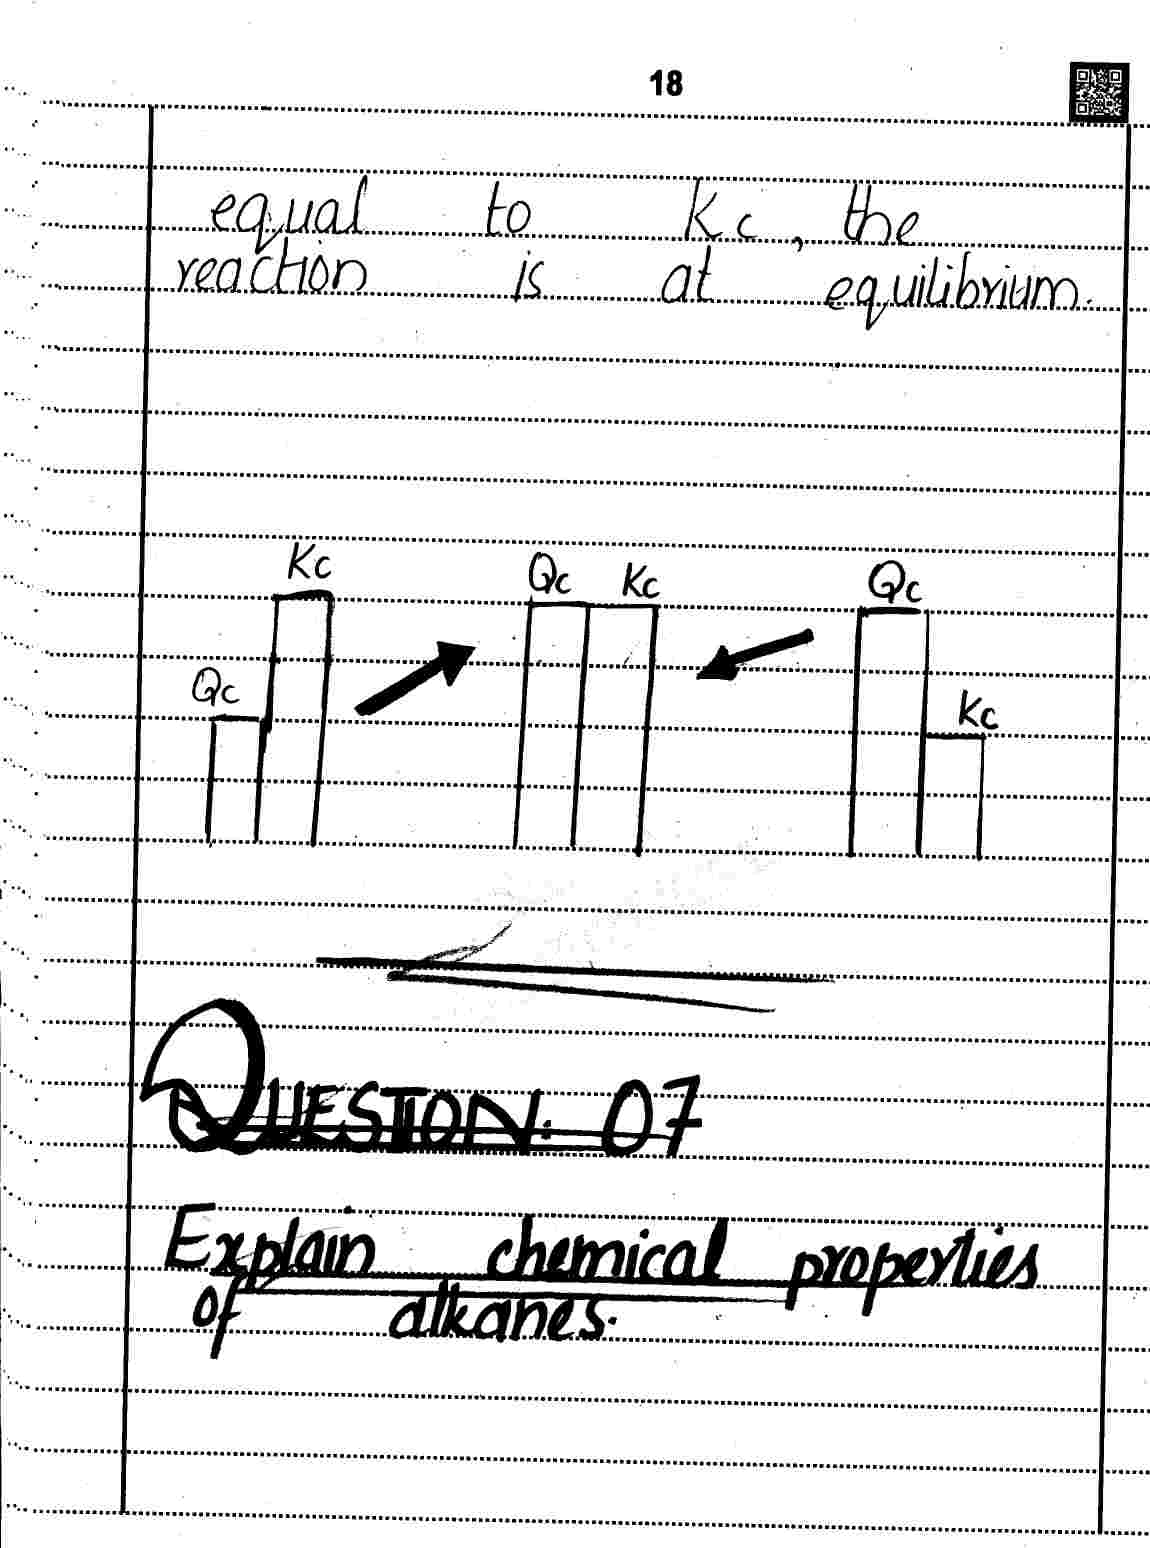 18
equal to Kc, the
reaction is at equilibrium.
Kc
Qc Kc
Qc
Qc
Kc
QUESTION: 07
Explain chemical properties
of alkanes.